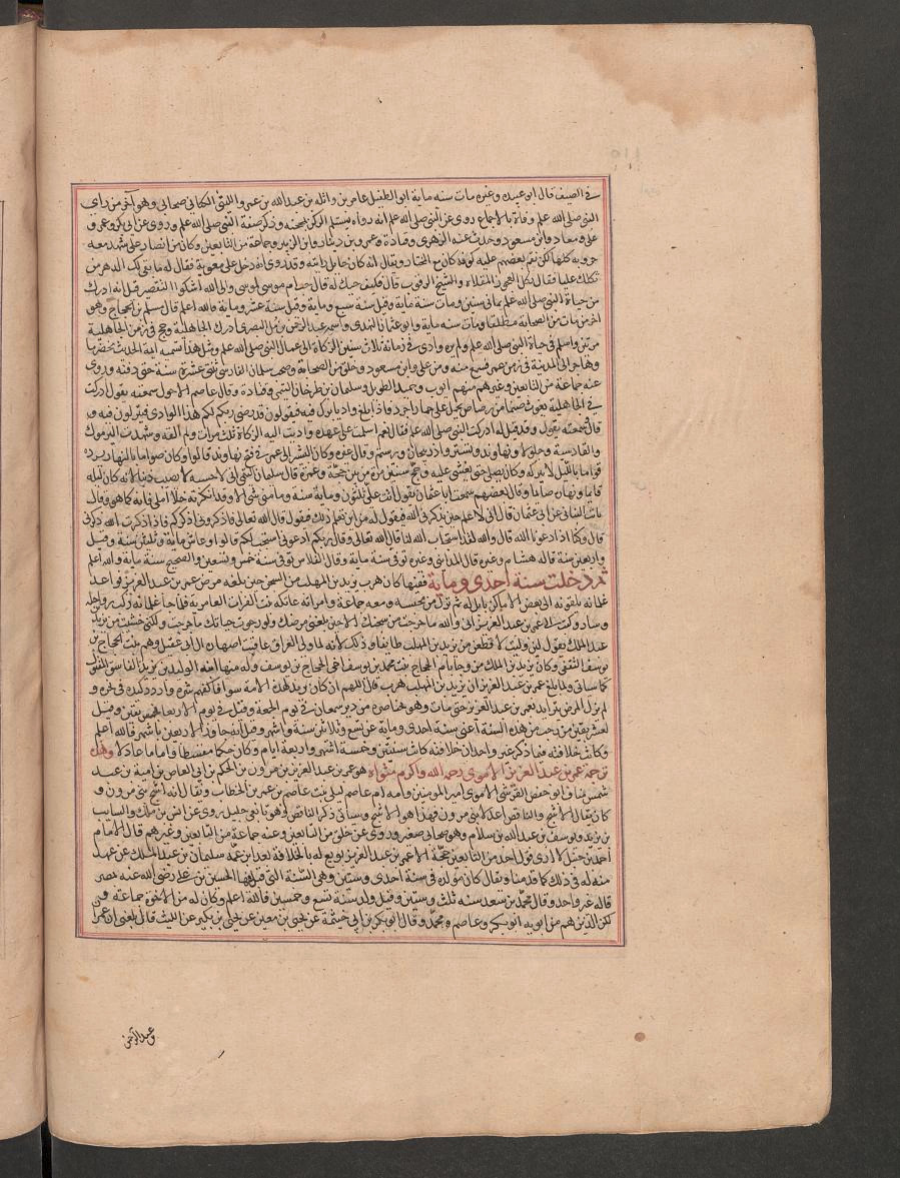 في الصيف قال ابو عبيده وغيره مات سنه ماية ابو الطفيل عامر بن واثله بن عبد الله بن عمرو الليثي الكناني صحابي وهو آخر من راى
النبي صلى الله علم وفاة بالاجماع روى عن النبي صلى الله علم انه رواه يستلم الركن بمحجنه وذكر صفة النبي صلى الله علم وروى عن ابي بكر وعمر و
علي ومعاذ وابن مسعود وحدث عنه الزهري وقتادة وعمرو بن دينار وابو الزبير وجماعة من التابعين وكان من انصار علي شهد معه
حروبه كلها لكن نقم بعضهم عليه كونه كان مع المختار ويقال انه كان حامل رايته وقد روى انه دخل على معوية فقال له ما بقى لك الدهر من
ثكلك عليا فقال ثكل العجوز المقلاة والشيخ الرقوب قال فكيف حبك له قال حب ام موسى لموسى والى الله اشكو التقصير قيل انه ادرك
من حياة النبي صلى الله علم ثماني سنين ومات سنة ماية وقيل سنة سبع وماية وقيل سنة عشر وماية فالله اعلم قال مسلم بن الحجاج وهو
اخر من مات من الصحابة مطلقا ومات سنه ماية وابو عثمان النهدي واسمه عبد الرحمن بن مل البصري ادرك الجاهلية وحج في زمن الجاهلية
مرتين واسلم في حياة النبي صلى الله علم ولم يره وادى في زمانه ثلاث سنين الزكاة الى عمال النبي صلى الله علم ومثل هذا تسميه ايمة الحديث مخضرما
وهاجر الى المدينة في زمن عمر فسمع منه ومن علي وابن مسعود وخلق من الصحابة وصحب سلمان الفارسي ثنتي عشرة سنة حتى دفنه وروى
عنه جماعة من التابعين وغيرهم منهم ايوب وحميد الطويل وسلمان بن طرخان التيمي وقتادة وقال عاصم الاحول سمعته يقول ادركت
في الجاهلية يغوث صنما من رصاص يحمل على جمل اجرد فاذا بلغ واديا برك فيه فيقولون قد رضي ربكم لكم هذا الوادي فينزلون فيه و
قال سمعته يقول وقد قيل له ادركت النبي صلى الله علم فقال نعم اسلمت على عهده واديت اليه الزكاة ثلث مرات ولم القه وشهدت اليرموك
والقادسية وجلولا ونهاوند وتستر واذربيجان ورستم وقال غيره وكان البشير الى عمر في فتح نهاوند قالوا وكان صواما بالنهار يسرده
قواما بالليل لا يتركه وكان يصلي حتى يغشى عليه وحج ستين مرة من بين حجة وعمرة قال سلمان التيمي اني لاحسبه لا يصيب ذنبا لانه كان ليله
قايما ونهاره صايما وقال بعضهم سمعت ابا عثمان يقول اتت علي ثلثون وماية سنة وما مني شي الا وقد انكرته خلا املي فانه كما هو وقال
ثابت البناني عن ابي عثمان قال اني لاعلم حين يذكرني الله فيقول له من اين تعلم ذلك فيقول قال الله تعالى فاذكروني اذكركم فاذا ذكرت الله ذكرني
قال وكنا اذا دعونا الله قال والله لقد استجاب الله لنا قال الله تعالى وقال ربكم ادعوني استجب لكم قالوا وعاش ماية وثلثين سنة وقيل
واربعين سنة قاله هشام وغيره قال المدايني وغيره توفي سنة ماية وقال الفلاس توفي سنة خمس وتسعين والصحيح سنة ماية والله اعلم
ثم دخلت سنة احدى وماية ففيها كان هرب يزيد بن المهلب من السجن حين بلغه مرض عمر بن عبد العزيز فواعد
غلمانه يلقونه الى بعض الاماكن بابل له ثم نزل من محبسه ومعه جماعة وامراته عاتكه بنت الفرات العامرية فلما جا غلمانه ركب رواحله
وسار وكتب الى عمر بن عبد العزيز اني والله ما خرجت من سجنك الا حين بلغني مرضك ولو رجوت حياتك ما خرجت ولكني خشيت من يزيد بن
عبد الملك يقول لئن وليت لاقطعن من يزيد بن المهلب طايفا وذلك لانه لما ولي العراق عاقب اصهاره ال ابي عقيل وهم بيت الحجاج بن
يوسف الثقفي وكان يزيد بن عبد الملك متزوجا بام الحجاج بنت محمد بن يوسف اخي الحجاج بن يوسف وله منها ابنه الوليد بن يزيد الفاسق المقتول
كما سياتي ولما بلغ عمر بن عبد العزيز ان يزيد بن المهلب هرب قال اللهم ان كان يريد بهذه الامة سوا فاكفهم شره واردد كيده في نحره و
لم يزل المرض يتزايد بعمر بن عبد العزيز حتى مات وهو بخناصره من دير سمعان في يوم الجمعة وقيل في يوم الاربعا لخمس بقين وقيل
لعشر بقين من رجب من هذه السنة اعني سنة احدى وماية عن تسع وثلاثين سنة واشهر وقيل انه جاوز الاربعين باشهر فالله اعلم
وكانت خلافته فيما ذكر غير واحد ان خلافته كانت سنتين وخمسة اشهر واربعة ايام وكان حكما مقسطا واماما عادلا وهذه
ترجمة عمر بن عبد العزيز الاموي رحمه الله واكرم مثواه هو عمر بن عبد العزيز بن مروان بن الحكم بن ابي العاص بن امية بن عبد
شمس بن مناف ابو حفص القرشي الاموي امير المومنين وامه ام عاصم ليلى بنت عاصم بن عمر بن الخطاب ويقال انه اشج بني مروان و
كان يقال الاشج والناقص اعدلا بني مروان فهذا هو الاشج وسياتي ذكر الناقص وهو تابعي جليل روى عن انس بن مالك والسايب
بن يزيد ويوسف بن عبد الله بن سلام وهو صحابي صغير وروى عن خلق من التابعين وعنه جماعة من التابعين وغيرهم قال الامام
احمد بن حنبل لا ارى قول احد من التابعين حجة الا عمر بن عبد العزيز بويع له بالخلافة بعد ابن عمه سليمان بن عبد الملك عن عهد
منه له في ذلك كما قدمنا ويقال كان مولده في سنة احدى وستين وهي السنة التي قتل فيها الحسين بن علي رضي الله عنه بمصر
قاله غير واحد وقال محمد بن سعد سنه ثلث وستين وقيل ولد سنة تسع وخمسين فالله اعلم وكان له من الاخوة جماعة و
لكن الذين هم من ابويه ابو بكر وعاصم ومحمد وقال ابو بكر بن ابي خيثمة عن يحيى بن معين عن يحيى بن بكير عن الليث قال بلغني ان عمران
عبد الرحمن